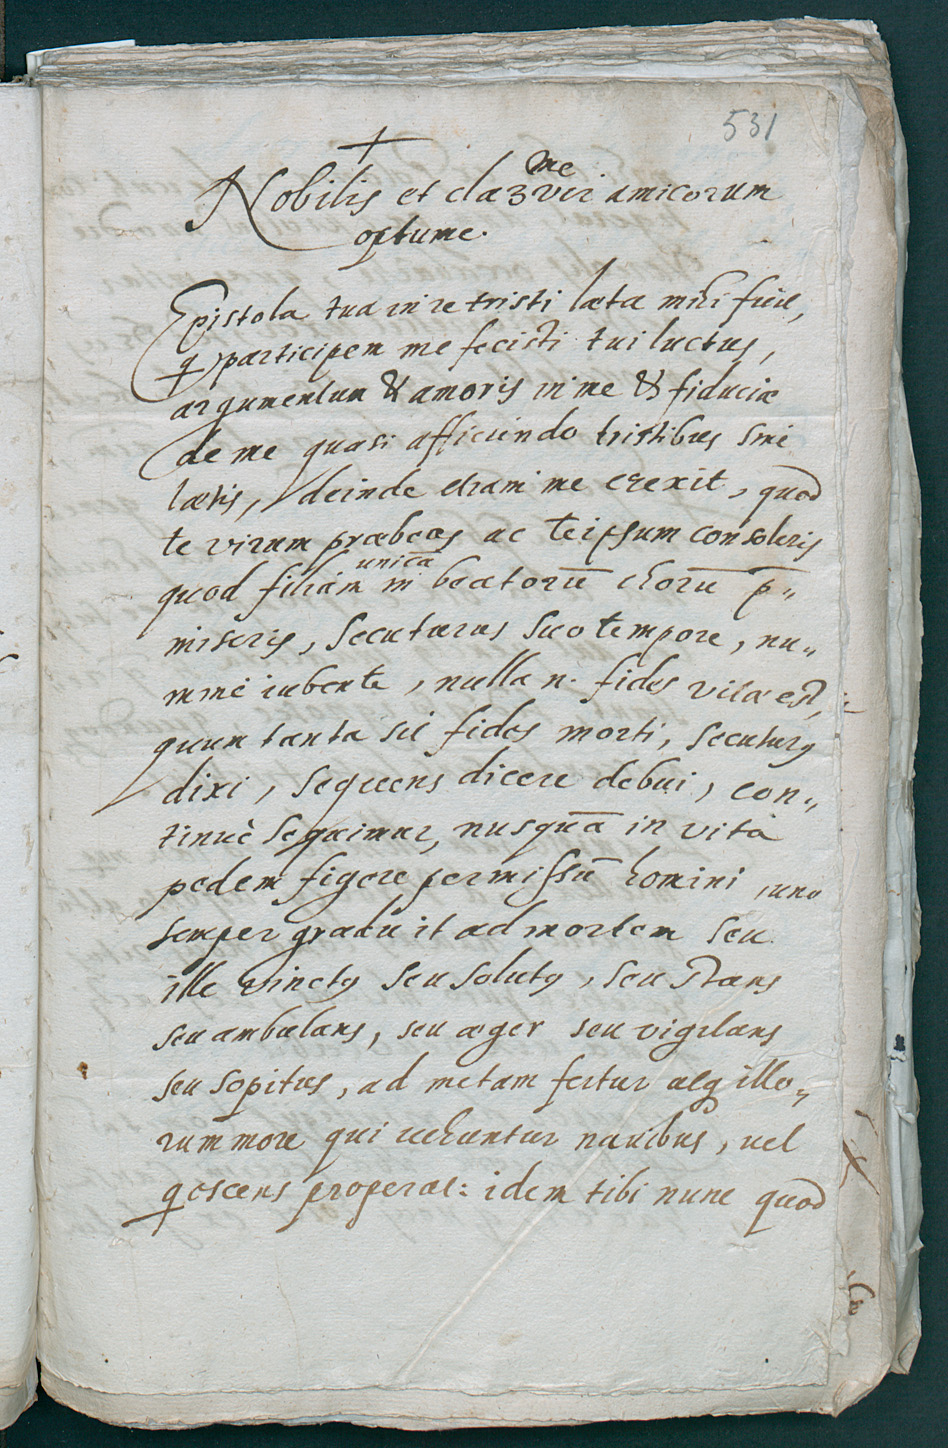 531
+
Nobilis et claʒ me vir amicorum
optume.
Epistola tua in re tristi læta mihi fuit,
q participem me fecisti tui luctus,
argumentum & amoris in me & fiduciæ
de me quasi afficiendo tristibus sine
lætis, deinde etiam me erexit, quod
te virum præbeas ac teipsum consoleris
quod filiam unicā in beatorū chorū p„
miseris, secuturus suo tempore, nu„
mine iubente, nulla n. fides vitæ est,
quum tanta sit fides morti, secuturꝰ
dixi, sequens dicere debui, con„
tinuè sequimur, nusquā in vita
pedem figere permissū homini, uno
semper gradu it ad mortem seu
ille vinctꝰ seu solutꝰ, seu stans
seu ambulans, seu æger seu vigilans
seu sopitus, ad metam fertur atq illo„
rum more qui uehuntur nauibus, uel
qescens properat: idem tibi nunc quod